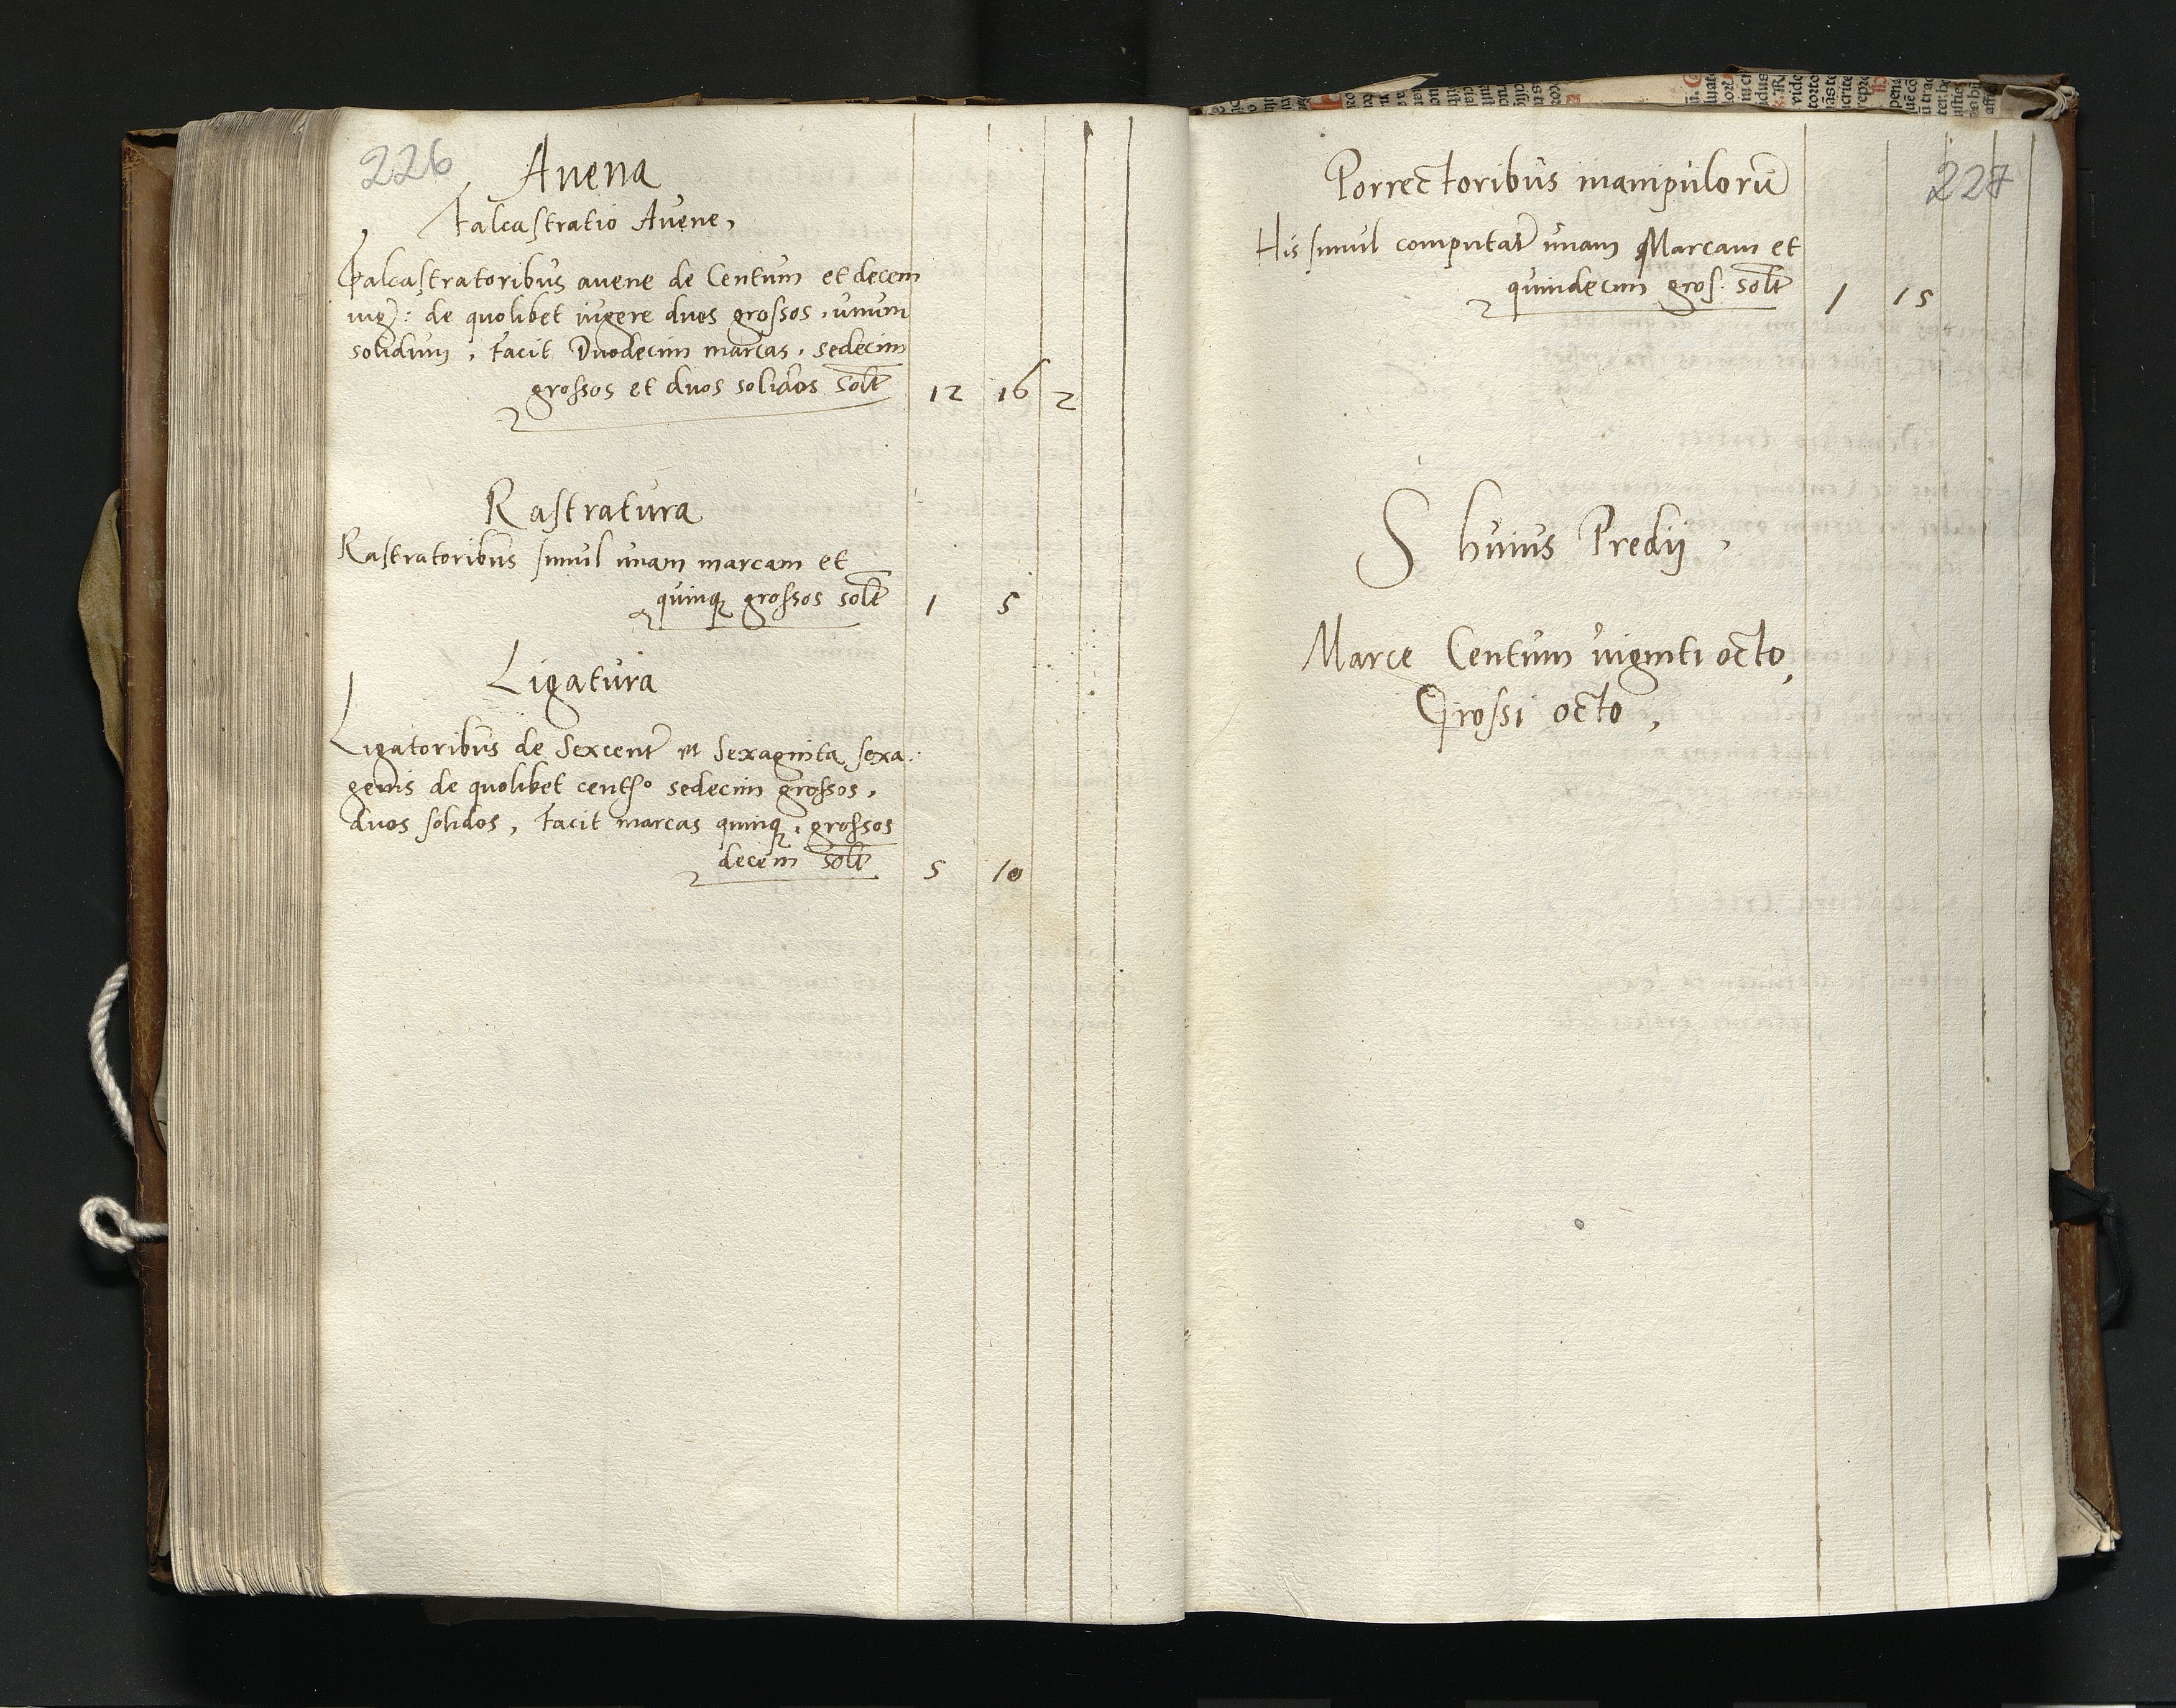 226
Auena
Falcastratio Auene,
Falcastratoribus auene de Centum et decem
iug: de quolibet iugere duos grossos, unum
solidum, facit Duodecim marcas, sedecim
grossos et duos solidos solt 12 16 2
Rastratura
Rastratoribus simul unam marcam et
quinq grossos solt 1 5
Ligatura
Ligatoribus de Sexcent et Sexaginta sexa:
genis de quolibet centº sedecim grossos,
duos solidos, facit marcas quinq, grossos
decem solt 5 10
227
Porrectoribus manipulorū
His simul computat unam Marcam et
quindecim gros. solt 1 15
S huius Predij,
Marce Centum uiginti octo,
Grossi octo,